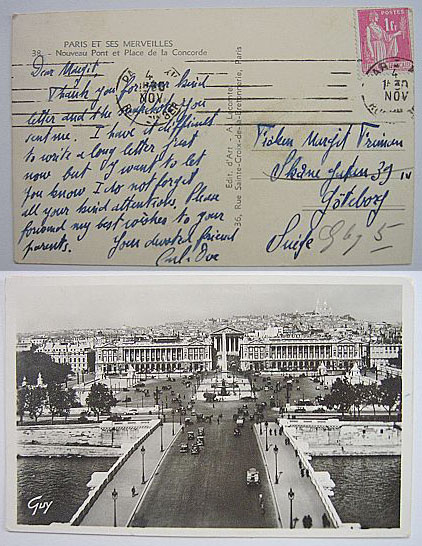 PARIS ET SES MERVEILLES
38 - Nouveau Pont et Place de la Concorde
POSTES
1Fr
4
NOV
4
NOV
Dear Margit,
Thank you for your kind
letter and the you
sent me. I have it difficult
to write a long letter just
now but I want to let
you know I do not forget
all your kind attentions. Please
forward my best wishes to your
parents.
Your devoted friend
Edit. d'Art A. Leconte
36, Rue Sainte-Croix-de-la-Bretonnerie, Paris
Margit
39 IV
Göteborg
Suède
Gbg 5
Guy